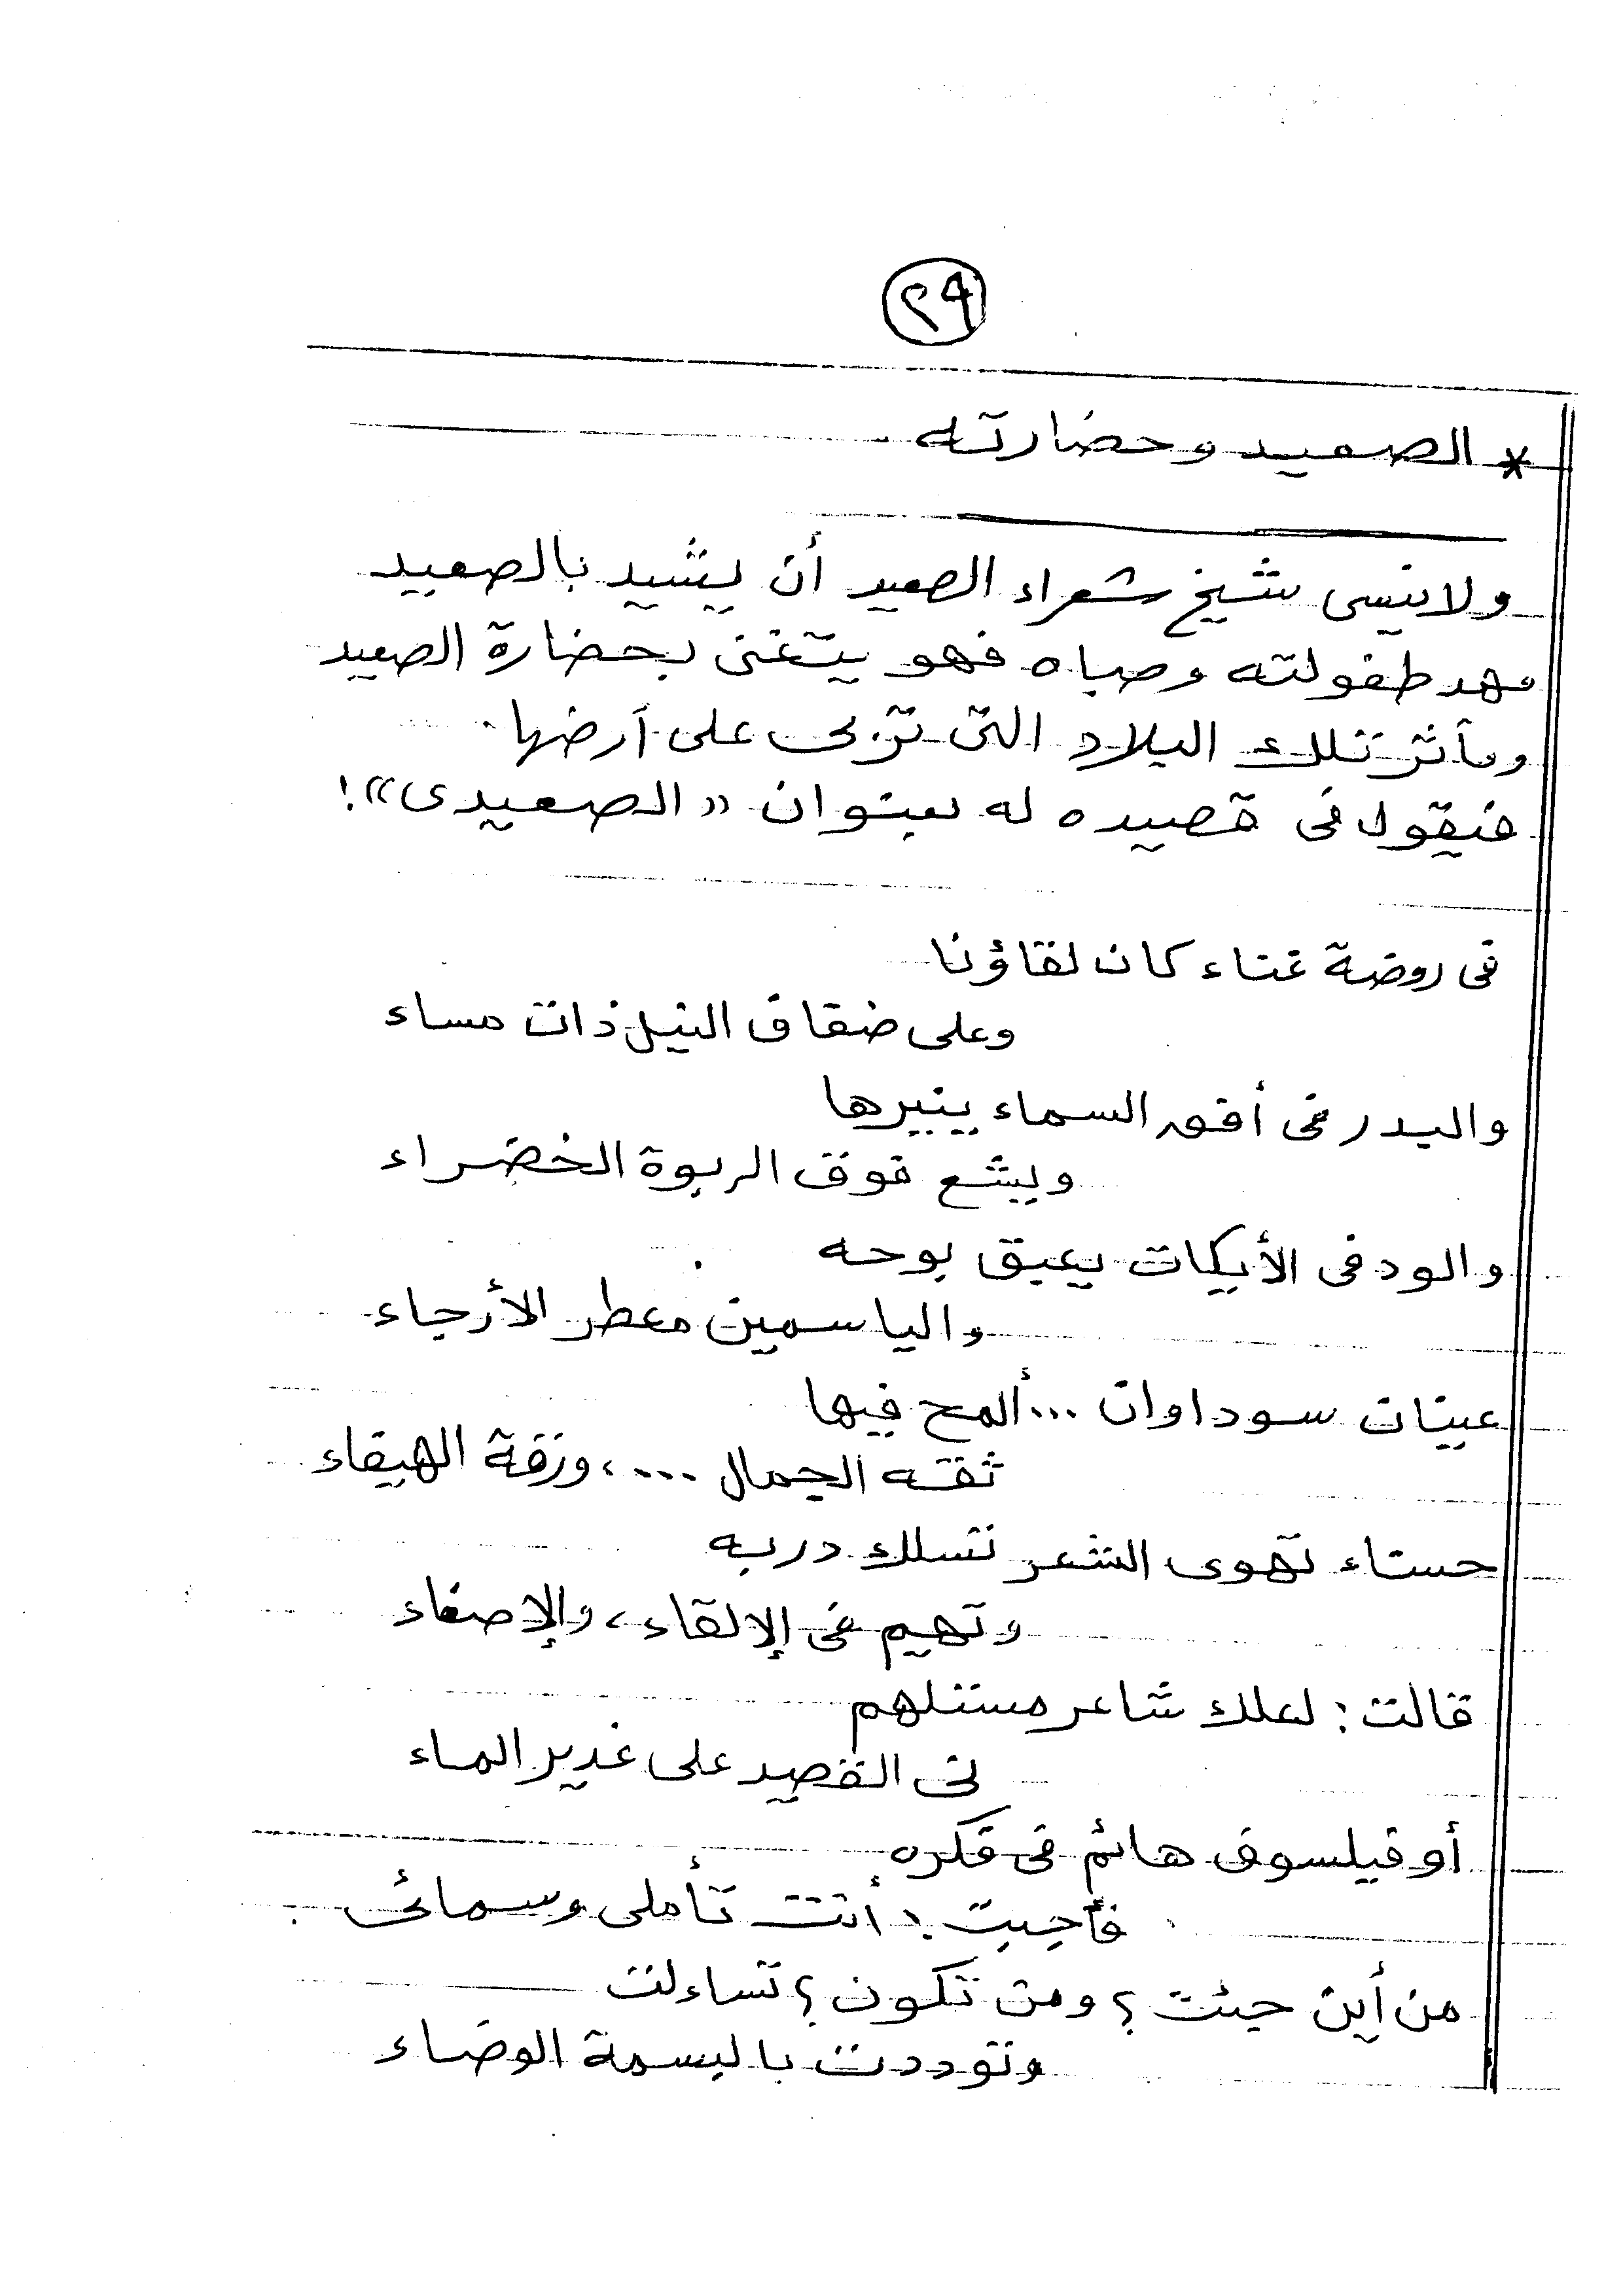 ٢٩
* الصعيد وحضارته
ولا ينسى شيخ شعراء الصعيد أن يشيد بالصعيد
مهد طفولته وصباه فهو يتغنى بحضارة الصعيد
ومآثر تلك البلاد التى تربى على أرضها
فيقول فى قصيده له بعنوان «الصعيدى»!
فى روضة غناء كان لقاؤنا
وعلى ضفاف النيل ذات مساء
والبدر فى أفق السماء ينيرها
ويشع فوق الربوة الخضراء
والود فى الأيكات يعبق بوحه
والياسمين معطر الأرجاء
عينان سوداوان ... ألمح فيها
ثقه الجمال ....، ورقة الهيفاء
حسناء تهوى الشعر تسلك دربه
وتهيم فى الإلقاء، والإصغاء
قالت: لعلك شاعر مستلهم
لى القصيد على غدير الماء
أو فيلسوف هائم فى فكره
فأجبت: أنت تأملى وسمائى
من أين جئت؟ ومن تكون؟ تساءلت
وتوددت بالبسمة الوضاء